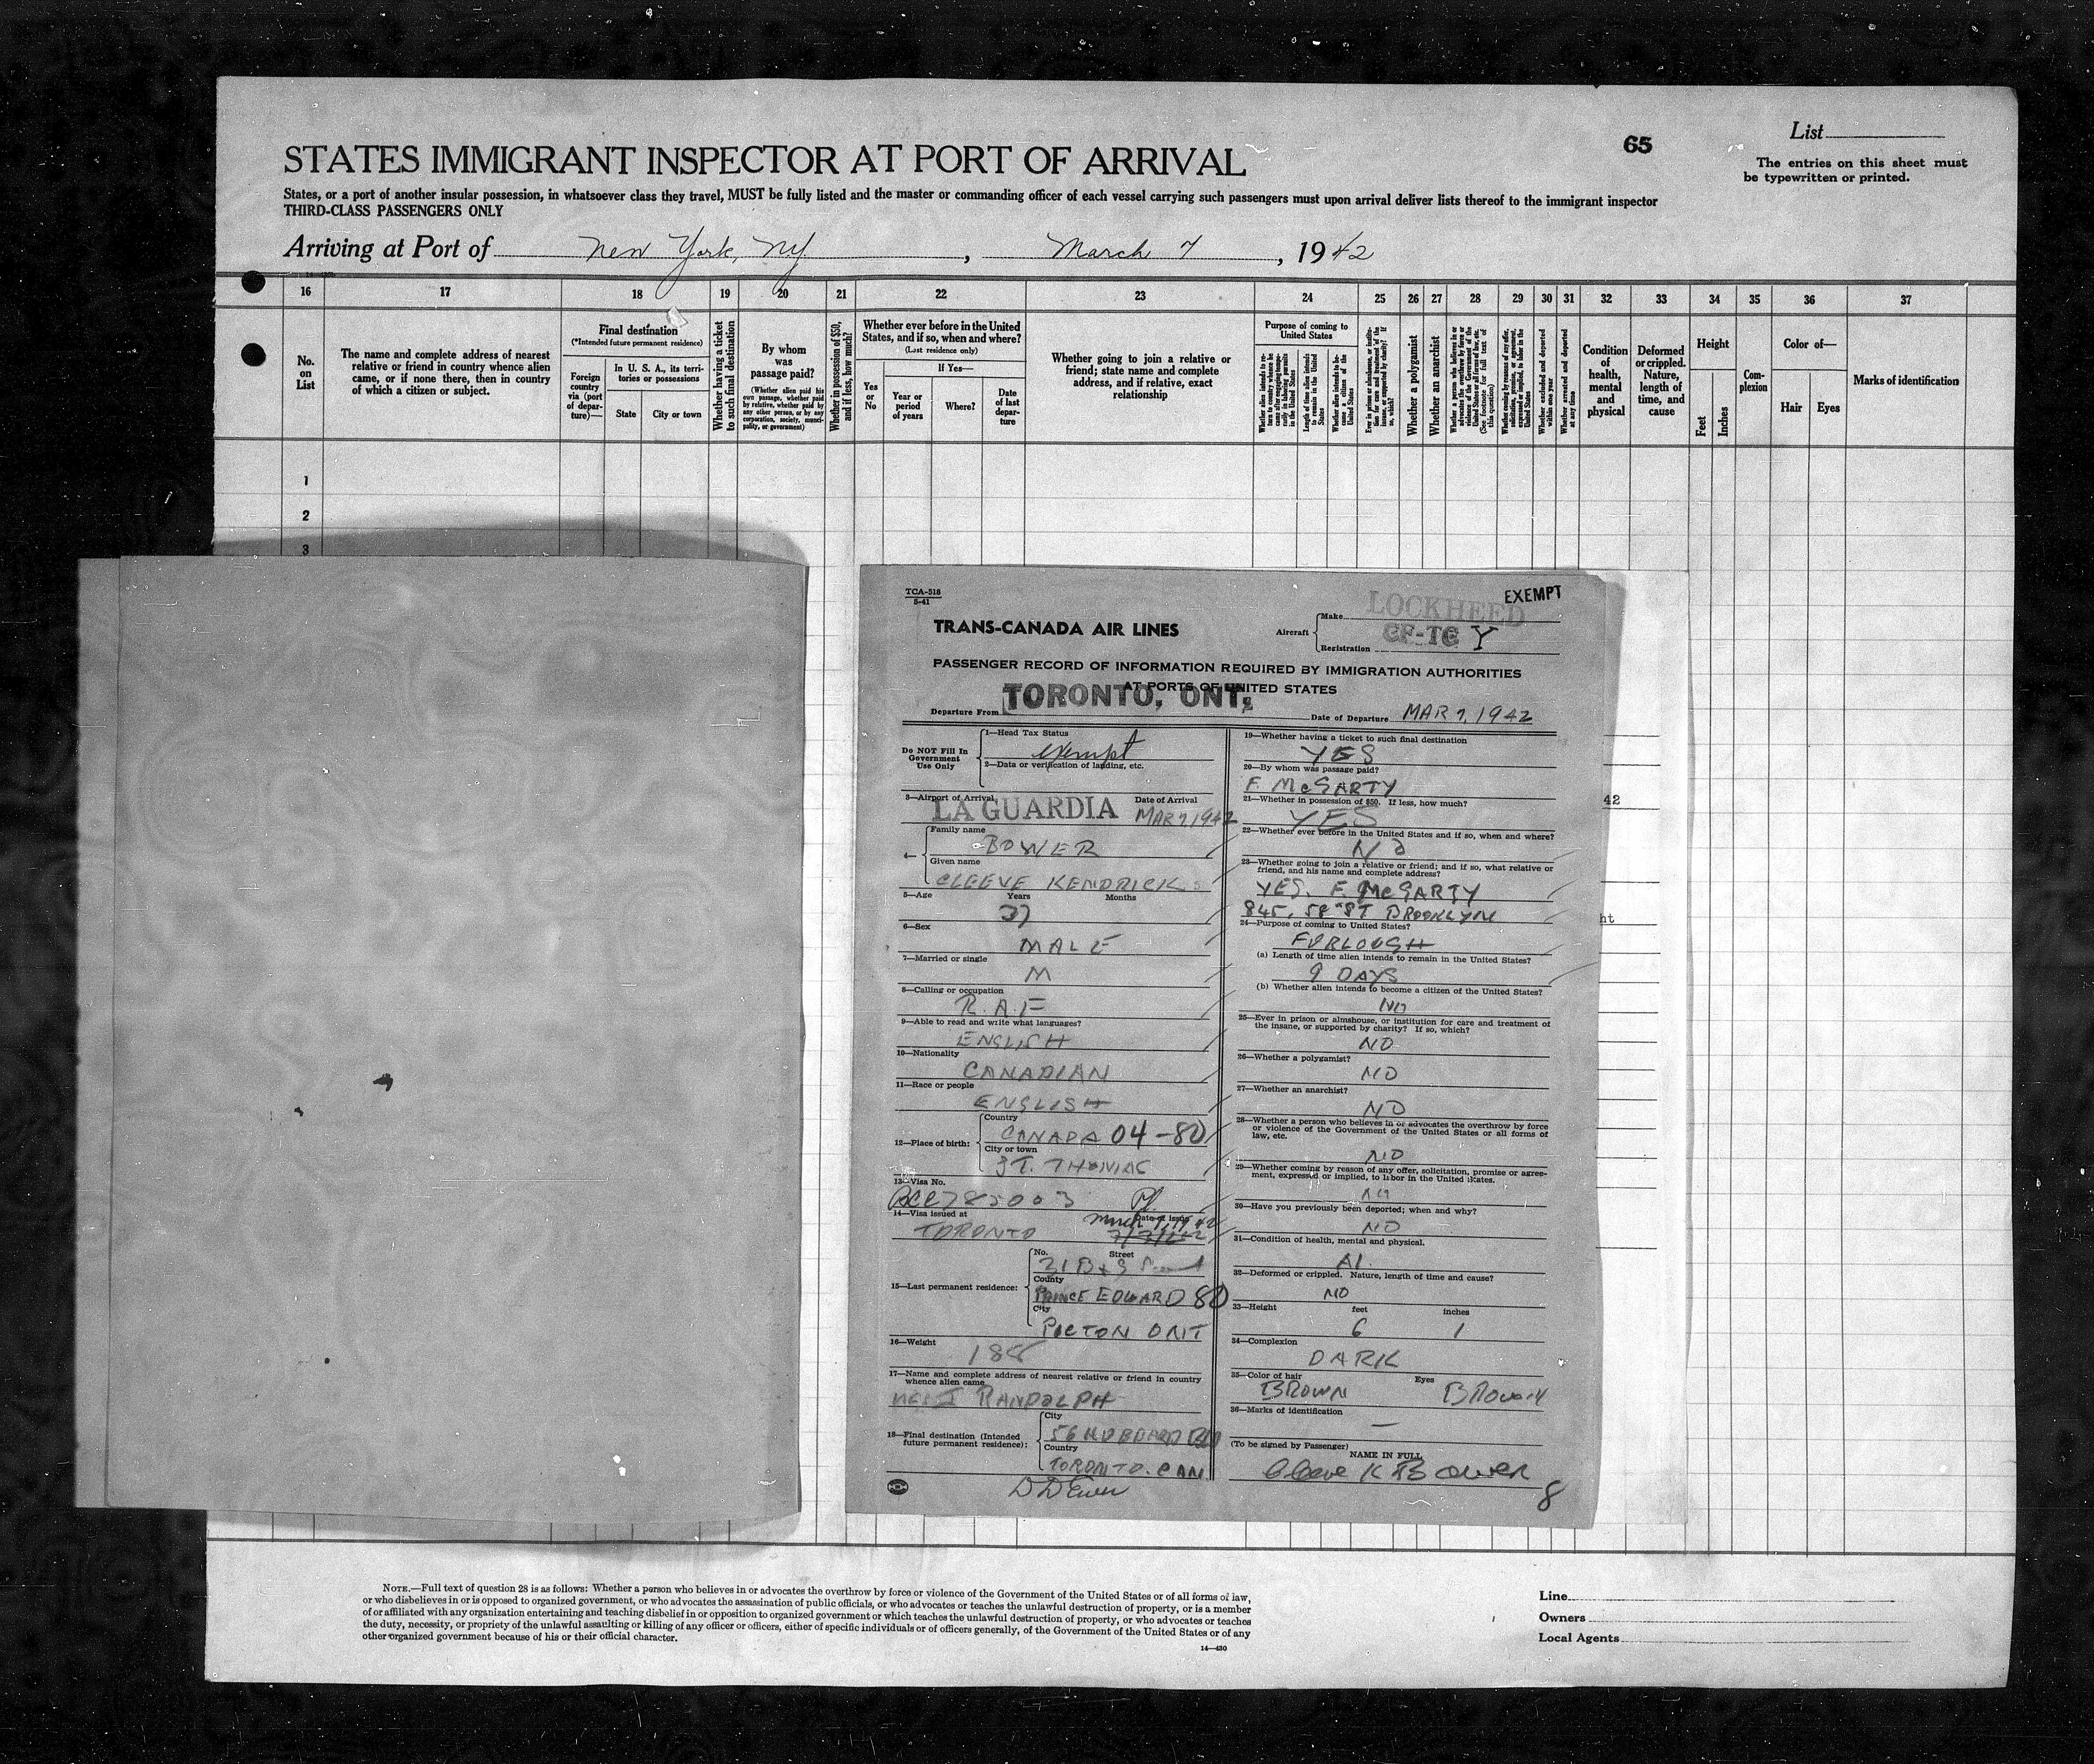 65
List
The entries on this sheet must
be typewritten or printed.
STATES IMMIGRANT INSPECTOR AT PORT OF ARRIVAL
States, or a port of another insular possession, in whatsoever class they travel, MUST be fully listed and the master or commanding officer of each vessel carrying such passengers must upon arrival deliver lists thereof to the immigrant inspector
THIRD-CLASS PASSENGERS ONLY
Arriving at Port of New York, NY, March 7, 1942
16 17 18 19 20 21 22 23 24 25 26 27 28 29 30 31 32 33 34 35 36 37
No. on List
The name and complete address of nearest relative or friend in country whence alien came, or if none there, then in country of which a citizen or subject.
Final destination
(*Intended future permanent residence)
Foreign country via (port of departure)—
In U. S. A., its territories or possessions
State
City or town
Whether having a ticket to such final destination
By whom was passage paid?
(Whether alien paid his own passage, whether paid by relative, whether paid by any other person, or by any corporation, society, municipality, or government)
Whether in possession of $50, and if less, how much?
Whether ever before in the United States, and if so, when and where?
(Last residence only)
If Yes—
Yes or No
Year or period of years
Where?
Date of last departure
Whether going to join a relative or friend; state name and complete address, and if relative, exact relationship
Purpose of coming to United States
Length of time alien intends to remain in the United States
Whether a polygamist
Whether an anarchist
Whether arrested and deported at any time
Condition of health, mental and physical
Deformed or crippled. Nature, length of time, and cause
Height
Feet
Inches
Complexion
Color of—
Hair
Eyes
Marks of identification
1
2
3
TCA-518
5-41
EXEMPT
TRANS-CANADA AIR LINES
Aircraft
Make LOCKHEED
Registration CF-TC Y
PASSENGER RECORD OF INFORMATION REQUIRED BY IMMIGRATION AUTHORITIES
AT PORTS OF UNITED STATES
Departure From TORONTO, ONT. Date of Departure MAR 7, 1942
Do NOT Fill In Government Use Only
1—Head Tax Status
exempt
2—Data or verification of landing, etc.
3—Airport of Arrival Date of Arrival
LA GUARDIA MAR 7, 1942
4—
Family name
BOWER
Given name
CLEEVE KENDRICK
5—Age Years Months
37
6—Sex
MALE
7—Married or single
M
8—Calling or occupation
R.A.F
9—Able to read and write what languages?
ENGLISH
10—Nationality
CANADIAN
11—Race or people
ENGLISH
12—Place of birth:
Country
CANADA 04-80
City or town
ST. THOMAS
13—Visa No.
785003
14—Visa issued at Date of issue
TORONTO March 7, 1942
15—Last permanent residence:
No. Street
31 B + G
County
PRINCE EDWARD 80
City
PICTON ONT
16—Weight
188
17—Name and complete address of nearest relative or friend in country whence alien came
RANDOLPH
18—Final destination (Intended future permanent residence):
City
56 HUBBARD
Country
TORONTO. CAN.
19—Whether having a ticket to such final destination
YES
20—By whom was passage paid?
F. McGARTY
21—Whether in possession of $50. If less, how much?
YES
22—Whether ever before in the United States and if so, when and where?
NO
23—Whether going to join a relative or friend; and if so, what relative or friend, and his name and complete address?
YES. F. McGARTY
845, 58 ST BROOKLYN
24—Purpose of coming to United States?
FURLOUGH
(a) Length of time alien intends to remain in the United States?
9 DAYS
(b) Whether alien intends to become a citizen of the United States?
NO
25—Ever in prison or almshouse, or institution for care and treatment of the insane, or supported by charity? If so, which?
NO
26—Whether a polygamist?
NO
27—Whether an anarchist?
NO
28—Whether a person who believes in or advocates the overthrow by force or violence of the Government of the United States or all forms of law, etc.
NO
29—Whether coming by reason of any offer, solicitation, promise or agreement, expressed or implied, to labor in the United States.
NO
30—Have you previously been deported; when and why?
NO
31—Condition of health, mental and physical.
A1.
32—Deformed or crippled. Nature, length of time and cause?
NO
33—Height feet inches
6 1
34—Complexion
DARK
35—Color of hair Eyes
BROWN BROWN
36—Marks of identification
—
(To be signed by Passenger)
NAME IN FULL
Cleeve K Bower
8
42
ht
NOTE.—Full text of question 28 is as follows: Whether a person who believes in or advocates the overthrow by force or violence of the Government of the United States or of all forms of law,
or who disbelieves in or is opposed to organized government, or who advocates the assassination of public officials, or who advocates or teaches the unlawful destruction of property, or is a member
of or affiliated with any organization entertaining and teaching disbelief in or opposition to organized government or which teaches the unlawful destruction of property, or who advocates or teaches
the duty, necessity, or propriety of the unlawful assaulting or killing of any officer or officers, either of specific individuals or of officers generally, of the Government of the United States or of any
other organized government because of his or their official character.
14—430
Line
Owners
Local Agents